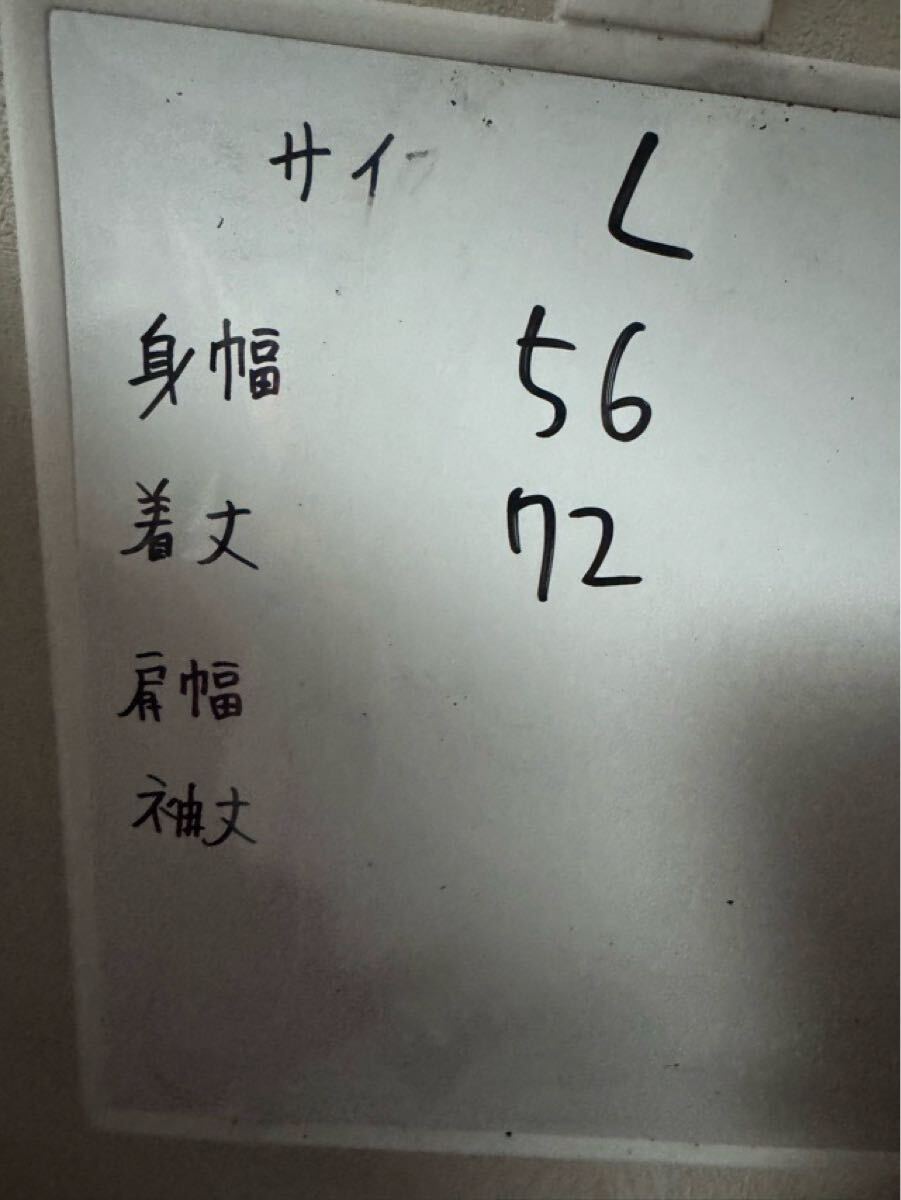 サイ L
身幅 56
着丈 72
肩幅
袖丈